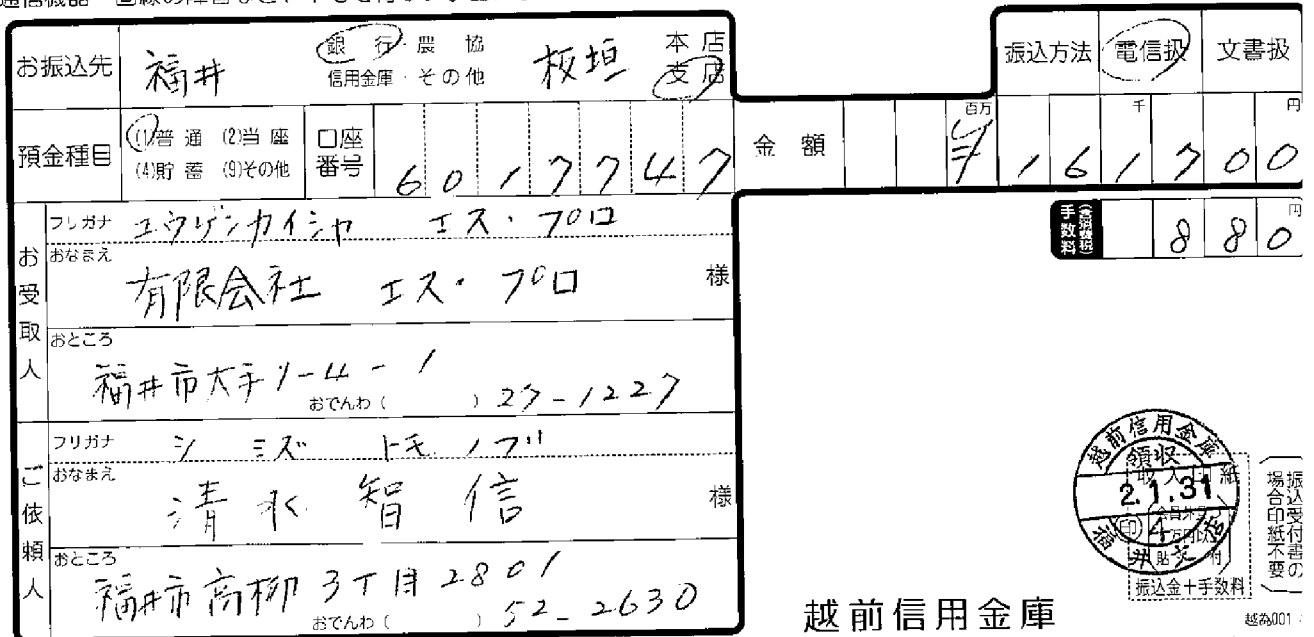 お振込先 福井 銀行・農協 信用金庫・その他 板垣 本店 支店 振込方法 電信扱 文書扱
預金種目 (1)普通 (2)当座 (4)貯蓄 (9)その他 口座番号 6017747 金額 百万 千 円 ¥161700
手数料 (含消費税) 円 880
お受取人
フリガナ ユウゲンカイシャ エス・プロ
おなまえ 有限会社 エス・プロ 様
おところ 福井市大手1-4-1
おでんわ( ) 27-1227
ご依頼人
フリガナ シミズ トモノブ
おなまえ 清水 智信 様
おところ 福井市高柳3丁目2801
おでんわ( ) 52-2630
越前信用金庫
領収
2.1.31
福井 支店
振込金+手数料
振込受付書の場合印紙不要
越前信用金庫
越為001